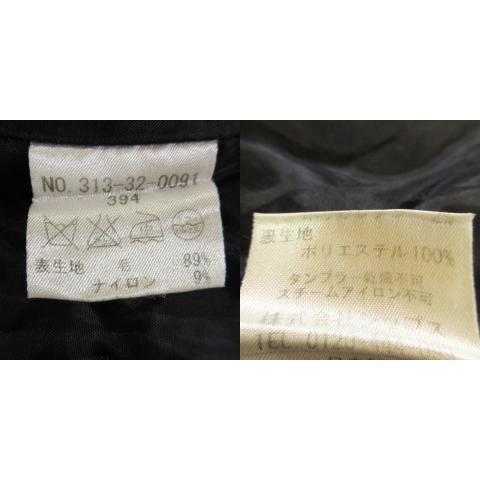 NO. 313-32-0091
394
表生地 毛 89%
ナイロン 9%
表生地
ポリエステル 100%
タンブラー乾燥不可
スチームアイロン不可
株式会社
TEL 0120